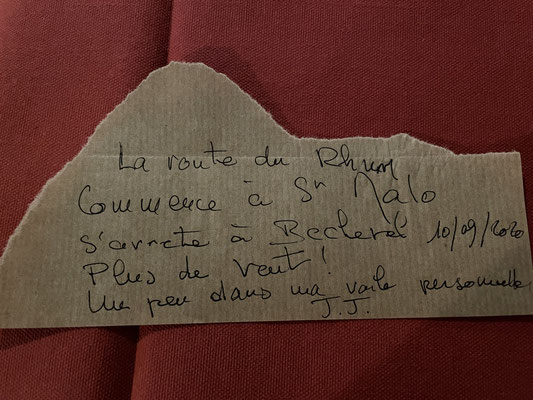 La route du Rhum
Commence à St Malo
s'arrete à Becherel 10/09/2020
Plus de vent !
Un peu dans ma voile personnelle
J.J.